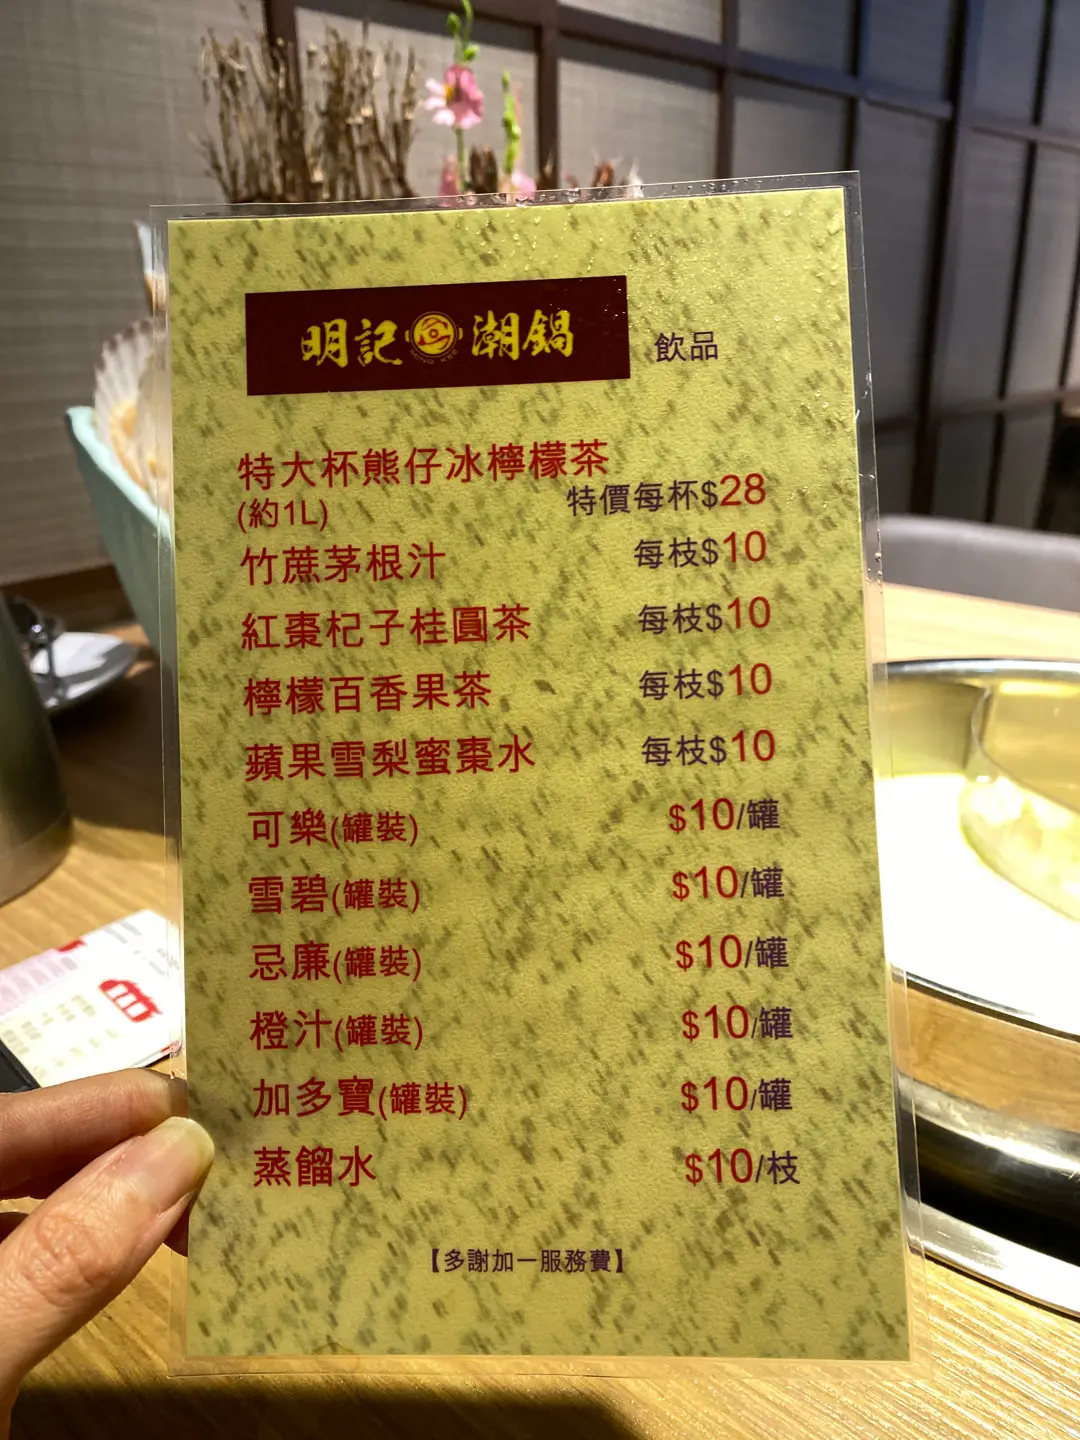 明記 潮鍋
MING KEE
飲品
特大杯熊仔冰檸檬茶
(約1L) 特價每杯$28
竹蔗茅根汁 每枝$10
紅棗杞子桂圓茶 每枝$10
檸檬百香果茶 每枝$10
蘋果雪梨蜜棗水 每枝$10
可樂(罐裝) $10/罐
雪碧(罐裝) $10/罐
忌廉(罐裝) $10/罐
橙汁(罐裝) $10/罐
加多寶(罐裝) $10/罐
蒸餾水 $10/枝
【多謝加一服務費】